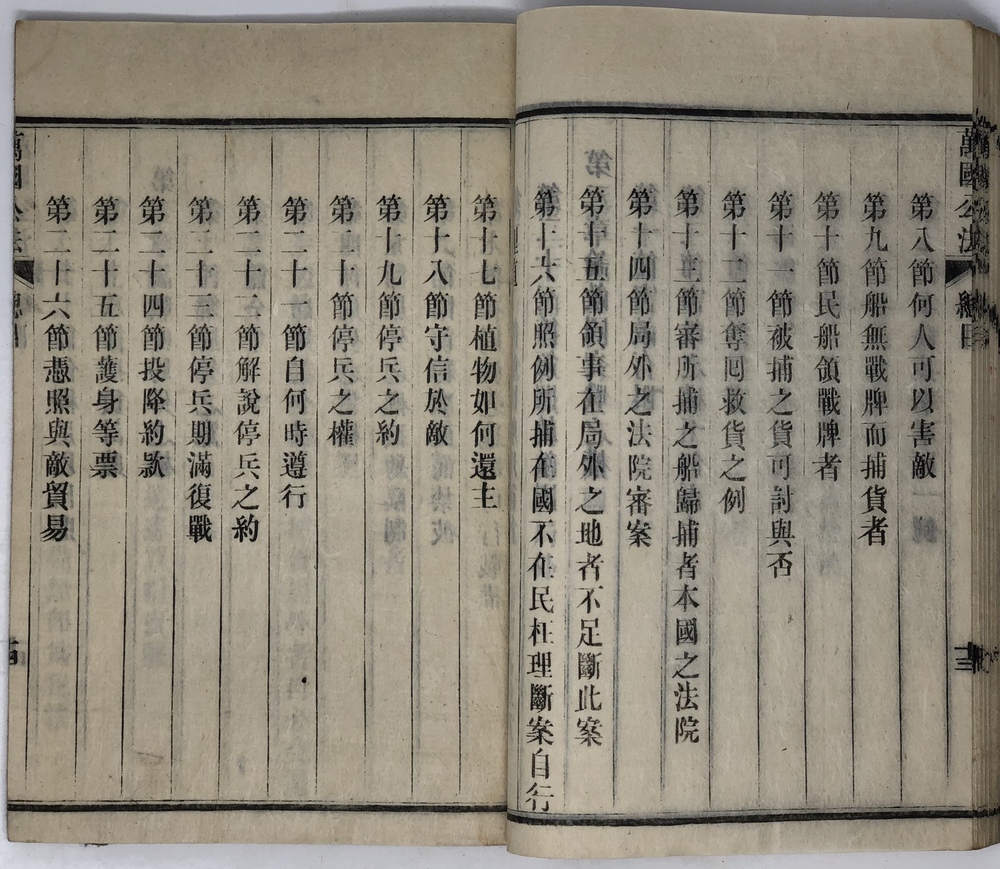 萬國公法
總目
十三
第八節何人可以害敵
第九節船無戰牌而捕貨者
第十節民船領戰牌者
第十一節被捕之貨可討與否
第十二節奪囘救貨之例
第十三節審所捕之船歸捕者本國之法院
第十四節局外之法院審案
第十五節領事在局外之地者不足斷此案
第十六節照例所捕在國不在民枉理斷案自行
第十七節植物如何還主
第十八節守信於敵
第十九節停兵之約
第二十節停兵之權
第二十一節自何時遵行
第二十二節解說停兵之約
第二十三節停兵期滿復戰
第二十四節投降約款
第二十五節護身等票
第二十六節憑照與敵貿易
萬國公法
總目
十四